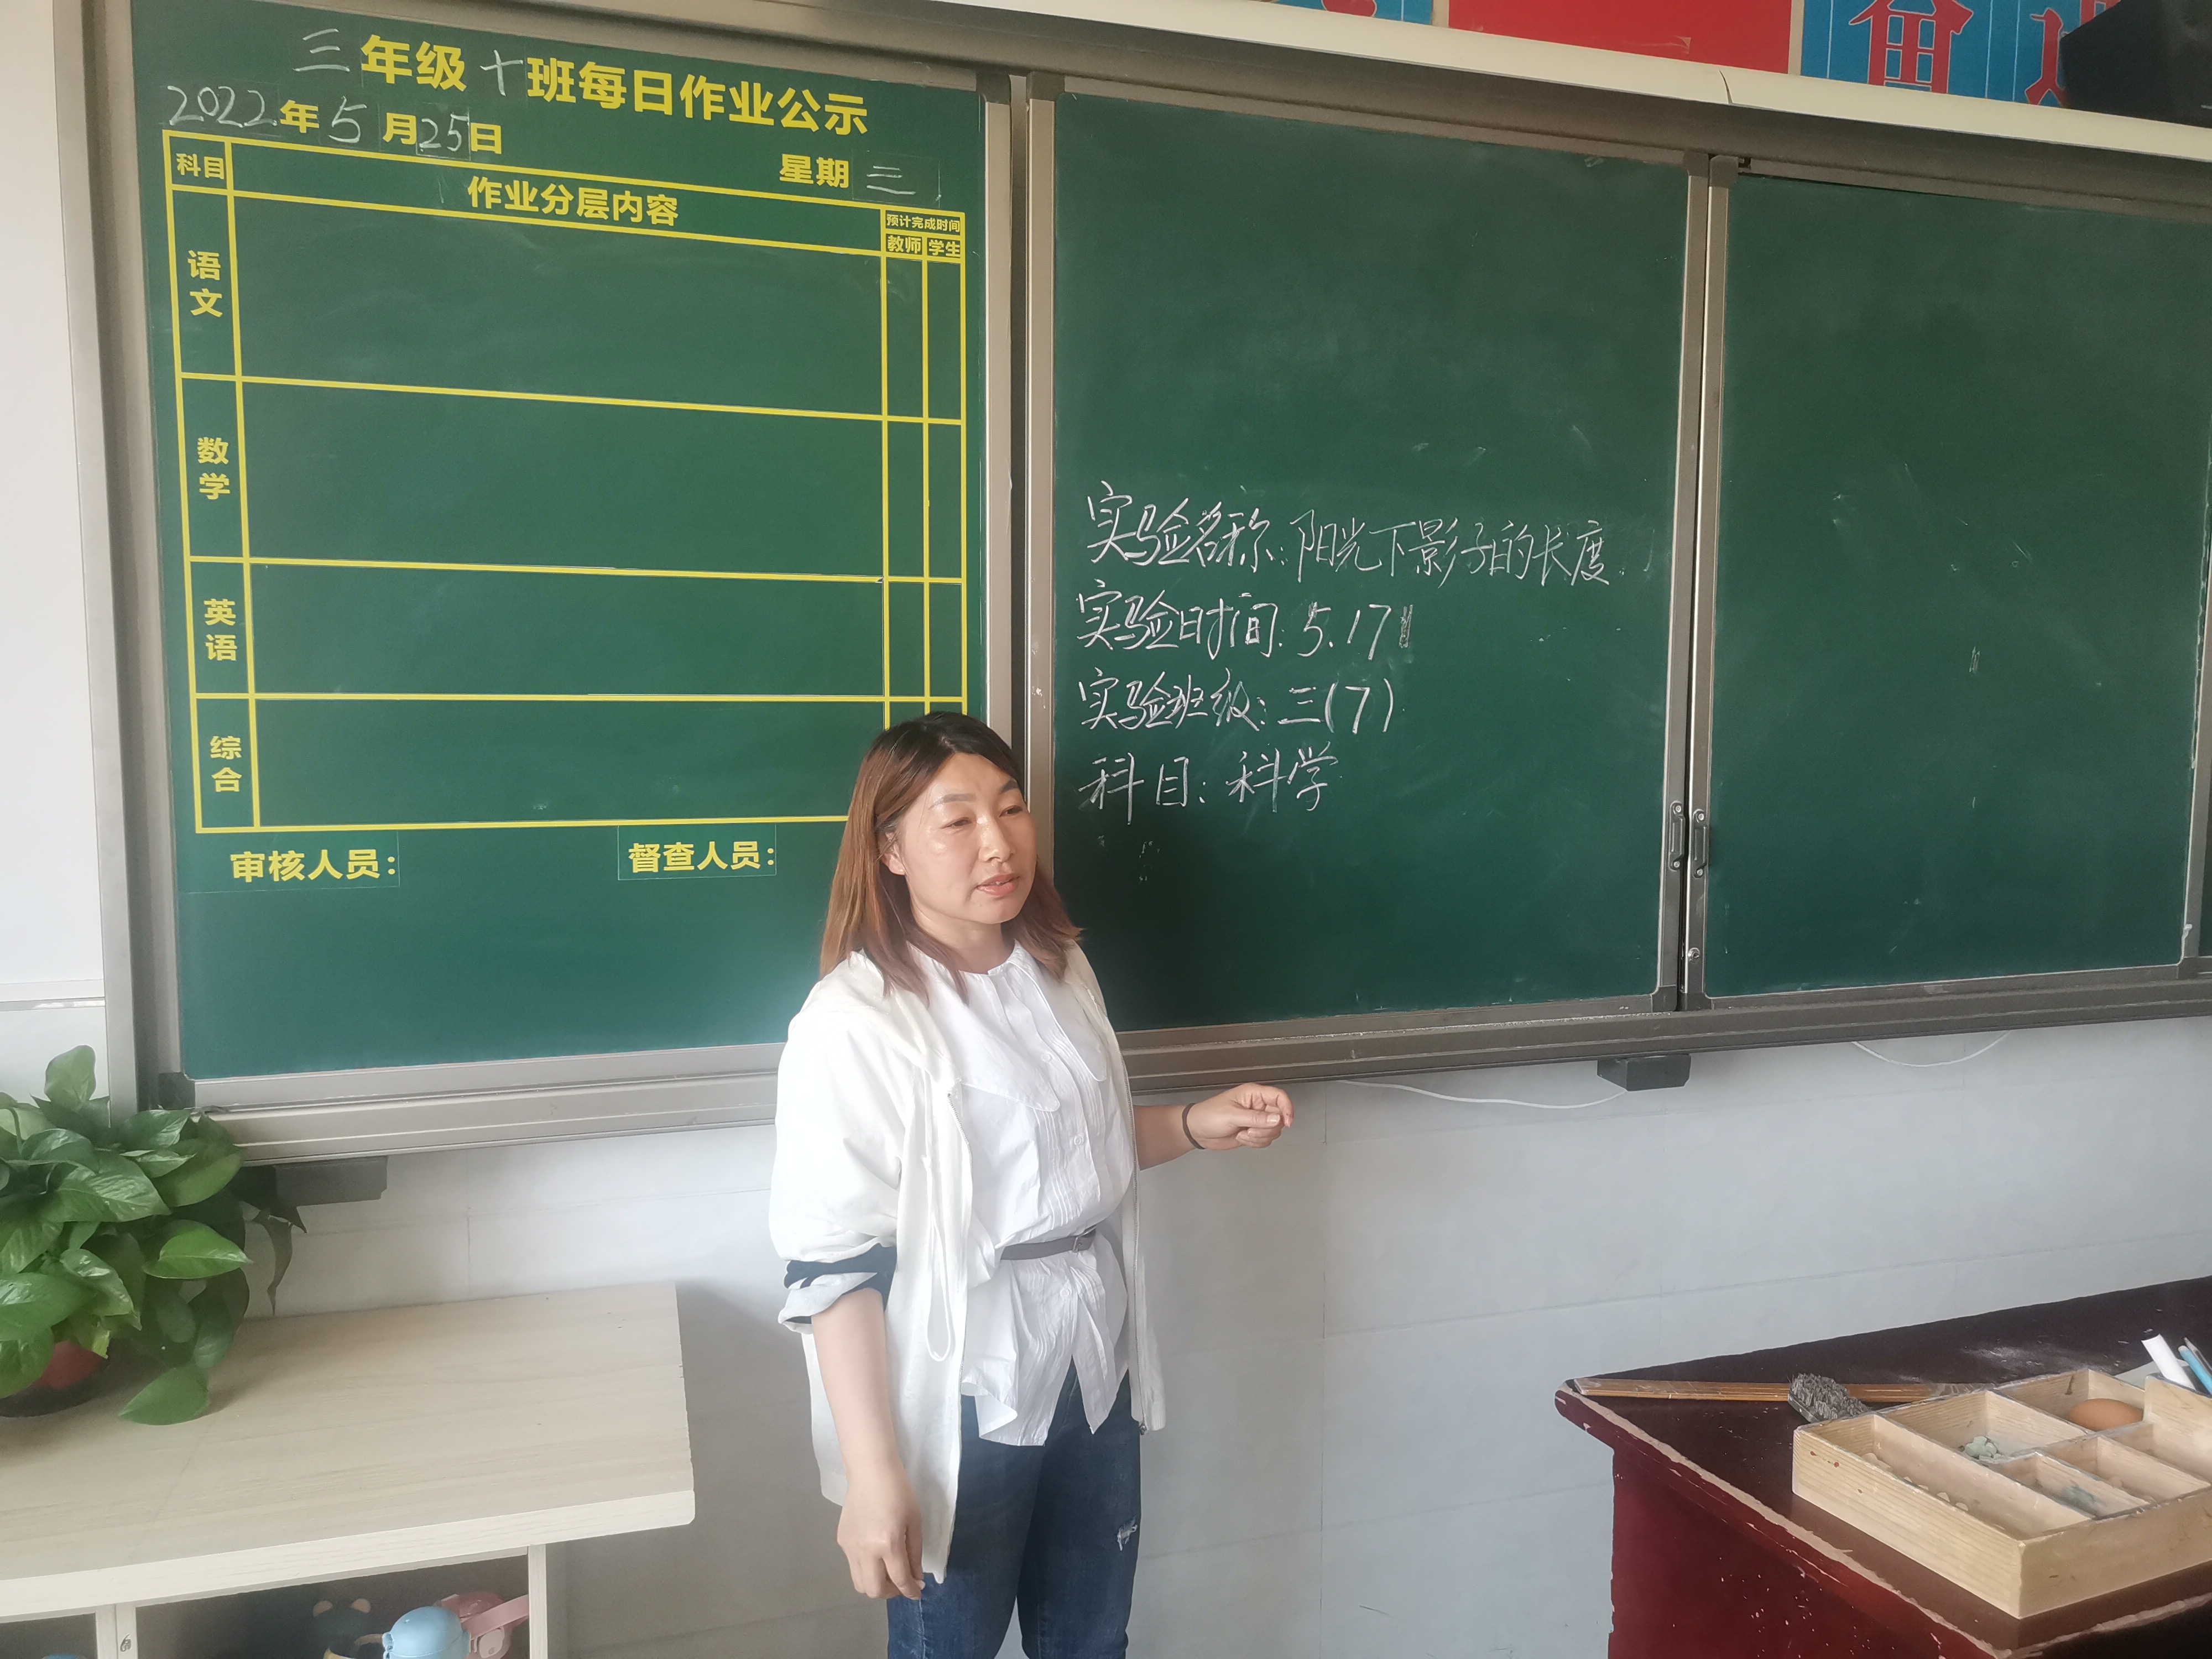 三年级十班每日作业公示
2022年5月25日
星期三
科目
作业分层内容
预计完成时间
教师
学生
语文
数学
英语
综合
审核人员：
督查人员：
实验名称：阳光下影子的长度
实验时间：5.17
实验班级：三(7)
科目：科学
奋